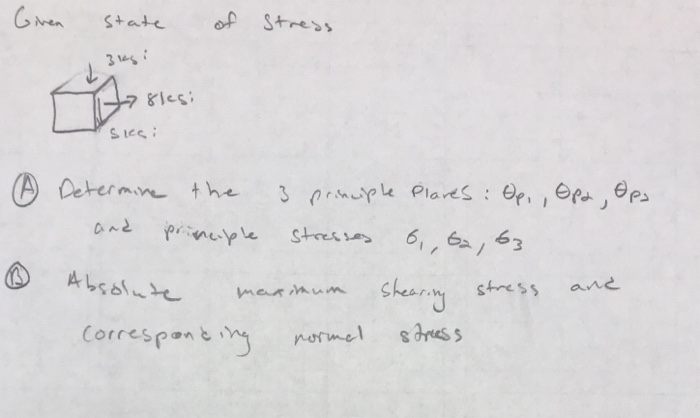 Given state of stress
3 ksi
8 ksi
5 ksi
(A) Determine the 3 principle planes: θp1, θp2, θp3
and principle stresses σ1, σ2, σ3
(B) Absolute maximum shearing stress and
corresponding normal stress